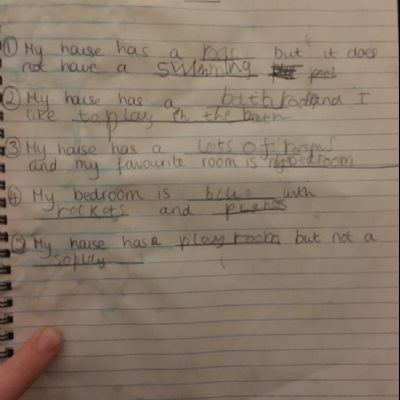 ① My house has a but it does
not have a swimming pool
② My house has a bathroom and I
like to play in the bath
③ My house has a lots of rooms
and my favourite room is my bedroom
④ My bedroom is blue with
rockets and planes
⑤ My house has a play room but not a